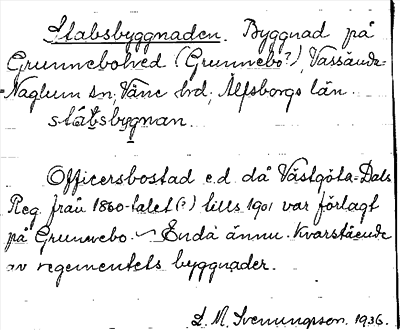 Stabsbyggnaden. Byggnad på
Grunnebohed (Grunnebo?), Vassända-
Naglum sn, Väne hd, Älfsborgs län.
stábsbygnan.
Officersbostad e.d då Västgöta-Dals
Reg från 1860-talet(?) tills 1901 var förlagt
på Grunnebo. ~ Enda ännu kvarstående
av regementets byggnader.
L. M. Svenungsson. 1936.